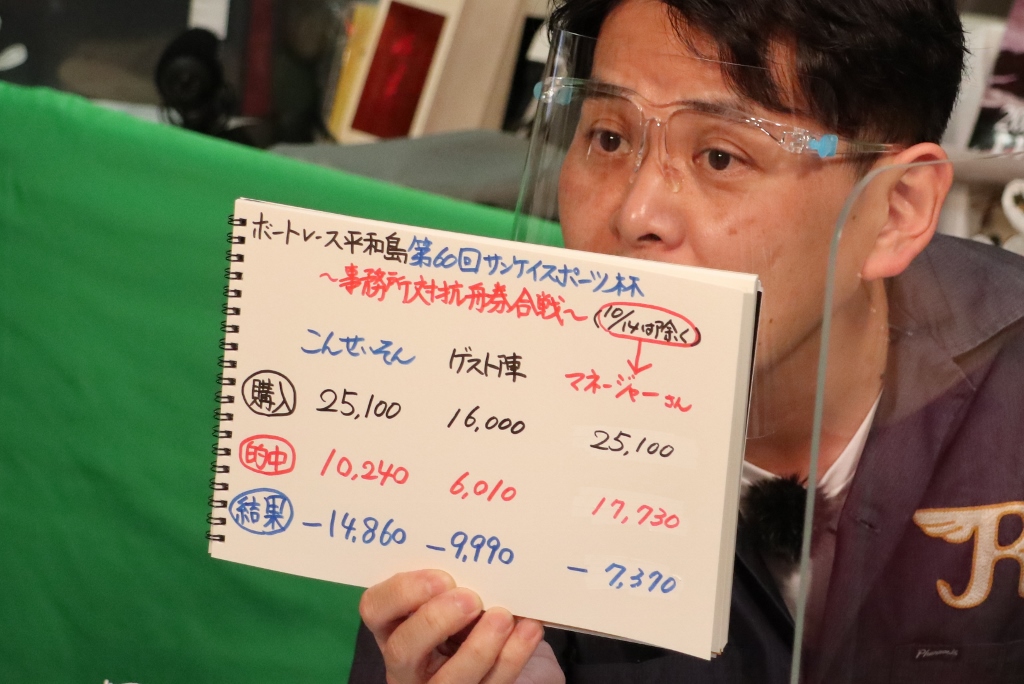 ボートレース平和島第60回サンケイスポーツ杯
～事務所対抗舟券合戦～(10/14は除く)
こんせいそん ゲスト陣 マネージャーさん
購入 25,100 16,000 25,100
的中 10,240 6,010 17,730
結果 -14,860 -9,990 -7,370